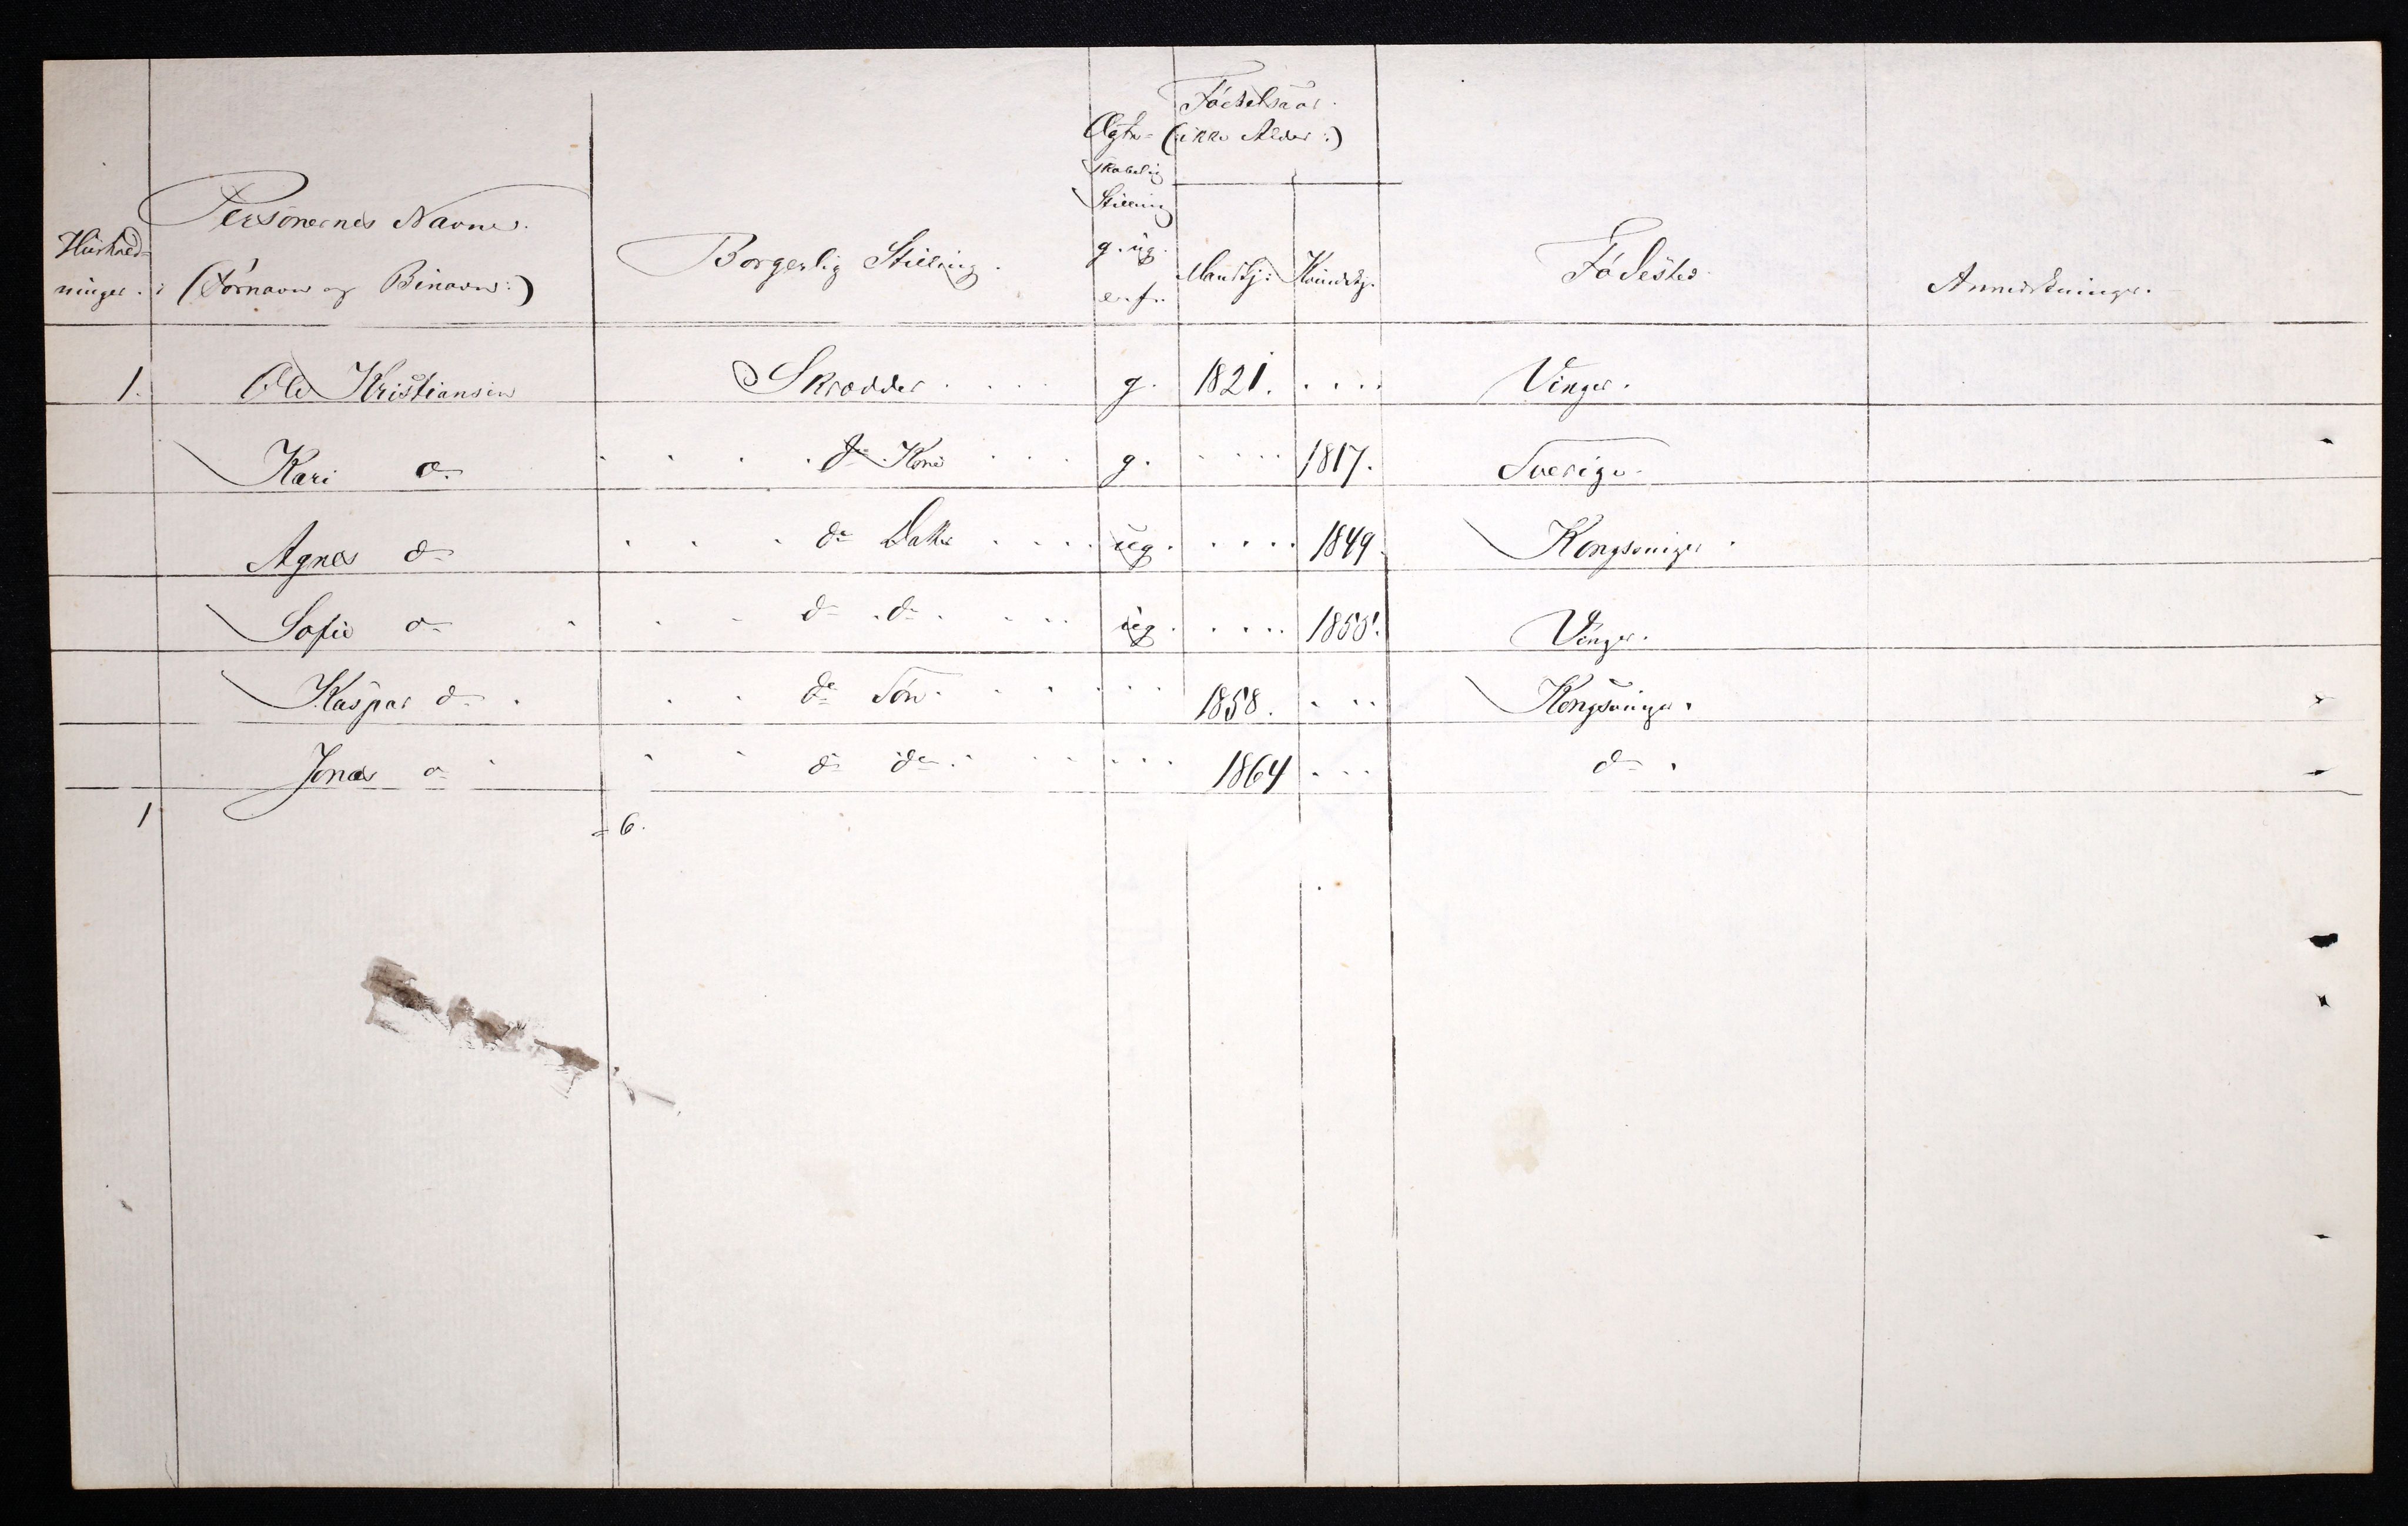 Fødselsaar.
Ægte- (: ikke Alder :)
skabelig
Stilling
Personernes Navne.
Hushold-
g. ug.
Borgerlig Stilling.
Fødested.
ninger. (: Fornavn og Binavn :)
e. f.
Mandkj: Kvindekj.
Anmerkninger.
1. Ole Kristiansen Skrædder . . . . g. 1821. . . . . Vinger.
Kari do . . . . do Kone . . . g. . . . . 1817. Sverige.
Agnes do . . . do Datter . . . . ug. . . . . 1849. Kongsvinger.
Sofie do . . . . do . do . . . . ug. . . . . 1855. Vinger.
Kaspar do . . . do Søn . . . . . . 1858. . . . Kongsvinger.
Jonas do . . . do do . . . . . . 1864 . . . do .
1 = 6.